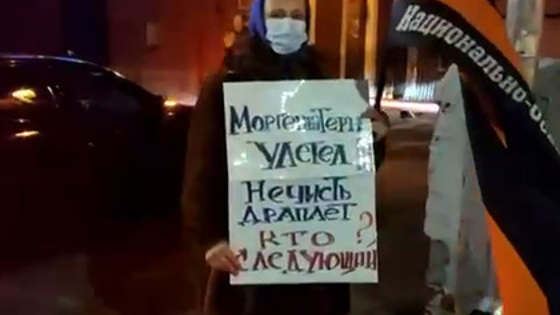 Национально-ос
Моргенштерн
улетел
Нечисть
драпает
кто ?
следующий